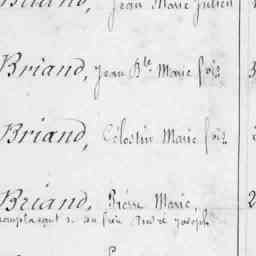 Briand, Jean Marie Julien
Briand, Jean Bte Marie fois
Briand, Célestin Marie fois
Briand, Pierre Marie, 2
remplaçant de son frère André Joseph